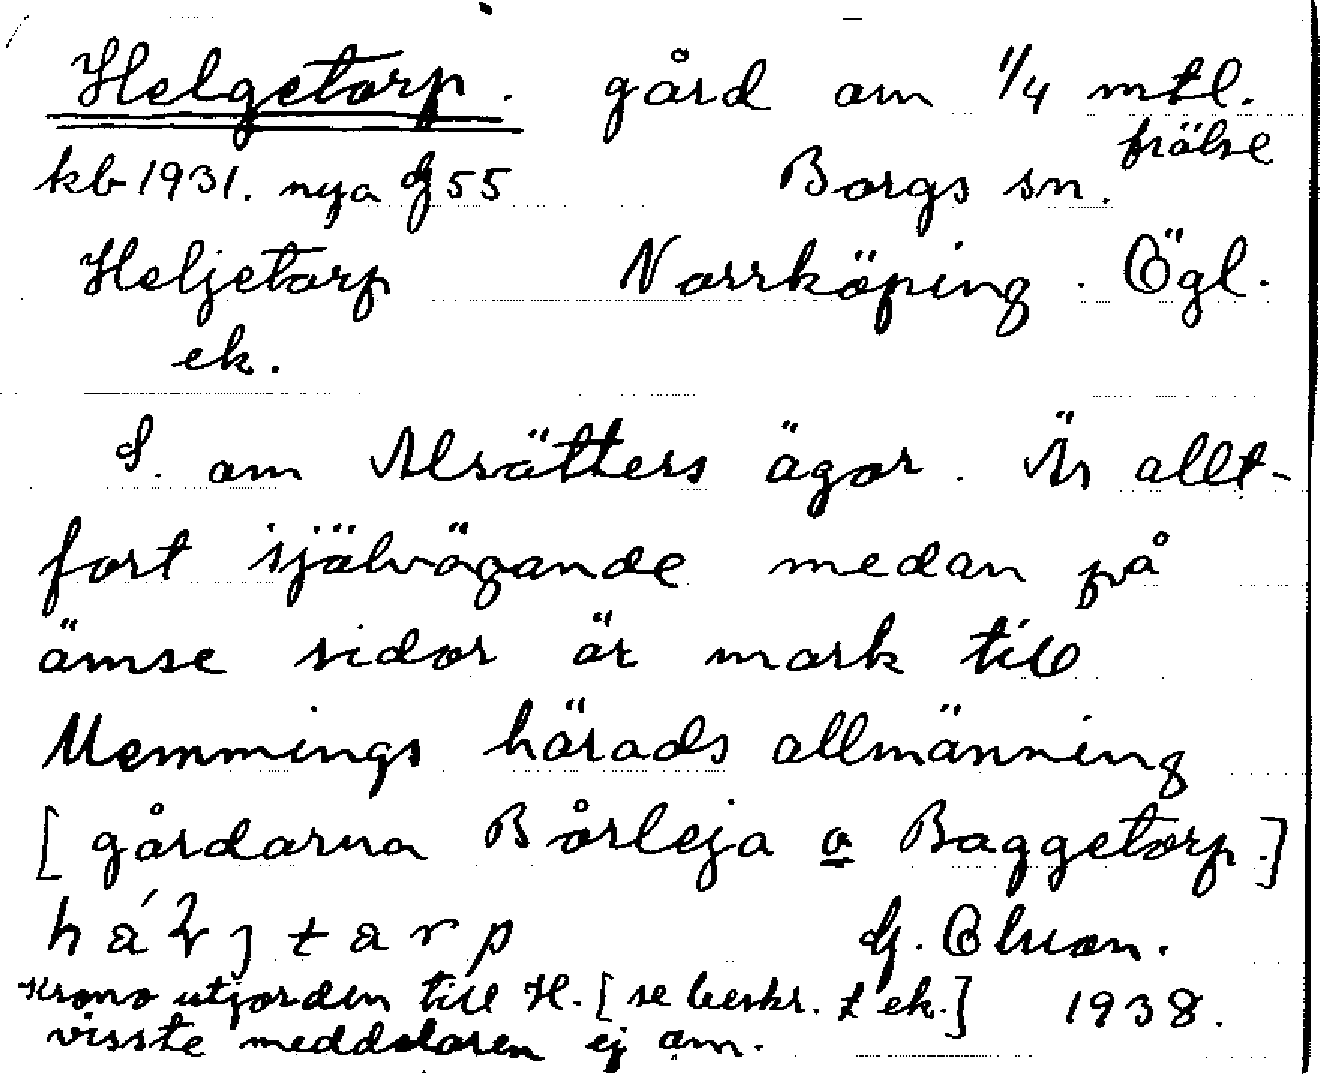 Helgetorp. gård om 1/4 mtl.
frälse
kb 1931. nya G 55 Borgs sn.
Heljetorp Norrköping. Ögl.
ek.
S. om Alsätters ägor. Är allt-
fort självägande medan på
ömse sidor är mark till
Memmings härads allmänning
[gårdarna Börleja o Baggetorp.]
tarp G. Olson.
Krono utjorden till H. [se beskr. t ek.] 1938.
visste meddelaren ej om.